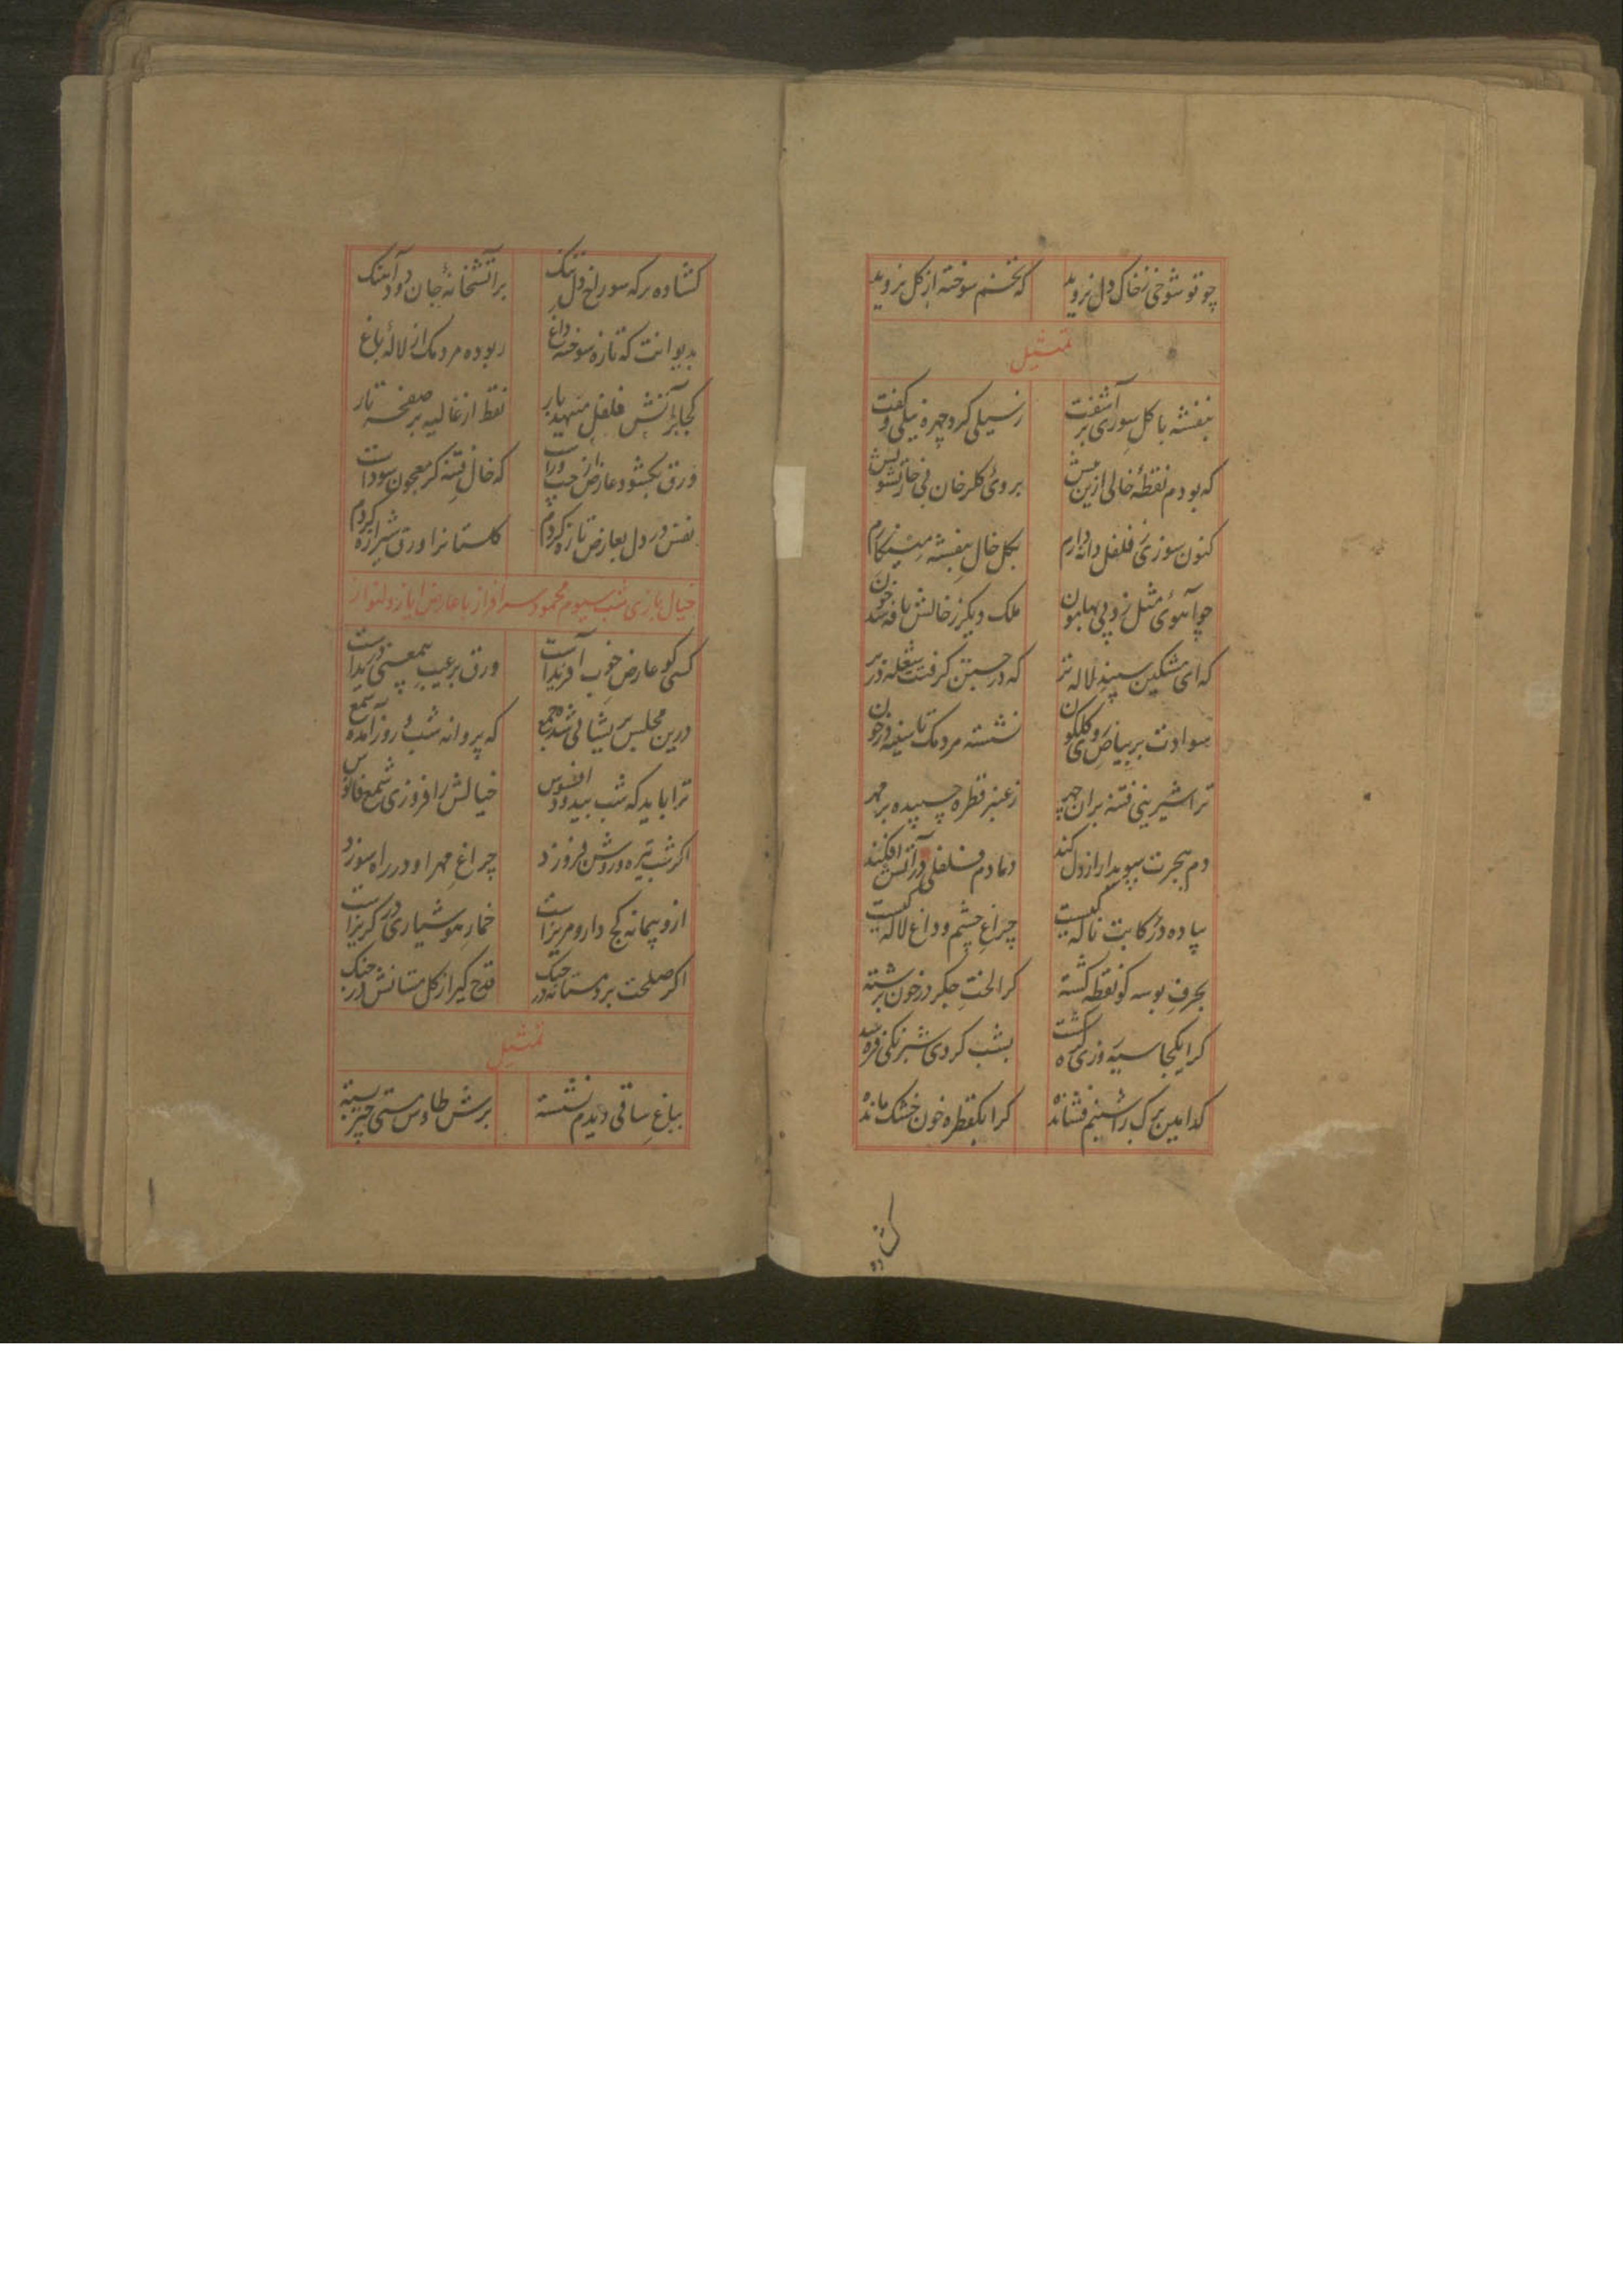 چو تو شوخی ز خاک دل نروید که تخم سوخته از گل نروید
تمثیل
بنفشه با گل سوری برآشفت ز سیلی کرد چهره نیلی و گفت
که بودم نقطهٔ خالی ازین پیش بروی گلرخان فی خار تشویش
کنون سوزی فلفل دانه دارم بگل خال بنفشه مینگارم
چو آهوی مثل زد پی بهامون ملک دیگر ز خالش نافه شد خون
که ای مشکین سپند لاله تر که در جستن گرفتت شعله در بر
سوادت بر بیاض روی گلگون نشسته مردمک تا سینه در خون
ترا شیرینی فتنه بران چهر ز عنبر قطره چسپیده بر مهر
دم هجرت سویدا را ز دل کند دمادم فلفلی در آتش افکند
پیاده در رکابت ناله کیست چراغ چشم و داغ لاله کیست
بحرف بوسه کو نقطه گشته کرا لخت جگر در خون برشته
کرا یکجا سیه روزی گره گشت بشب کردی شبرنگی فره
کدامین برگ را شبنم فشانده کرا یکقطره خون خشک مانده
کشاده
کشاده برکه سوراخ دل تنگ بر آتشخانهٔ جان دود آهنگ
بدیوانت که تازه سوخته داغ ربوده مردمک از لالهٔ باغ
کجا بر آتش فلفل منهد یار نقط از غالیه بر صفحه تار
ورق بگشود عارض از چپ و راست که خال فتنه گر معجون سوداست
نفس در دل بعارض تازه کردم گلستانرا ورق شیرازه کردم
خیال بازی شب سیوم محمود سرافراز با عارض ایاز دلنواز
کسی کو عارض خوب آفریدست ورق بر عیب بیمعنی دریدست
درین مجلس پریشانی شده جمع که پروانه شب و روز آمده شمع
ترا باید که شب بیدود افسوس خیالش را فروزی شمع فانوس
اگر شب تیره و روشن فروزد چراغ مهر او در راه سوزد
ازو پیمانه کج دار و مریزست خمار هوشیاری در گریزست
اگر صلحت برد مستانه در جنگ قدح گیر از گل مستانش در چنگ
تمثیل
بباغ ساقی دیدم نشسته برش طاوس مستی چتر بسته